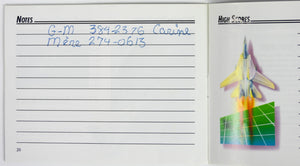 NOTES
G-M 384-2376 Carine
Mère 274-0613
26
HIGH SCORES